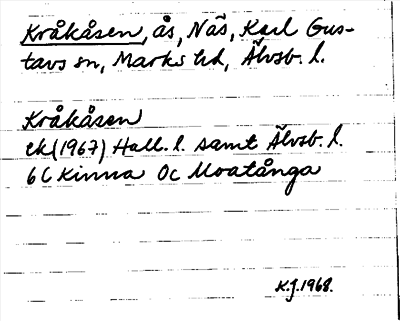 Kråkåsen, ås, Näs, Karl Gus-
tavs sn, Marks hd, Älvsb. l.
Kråkåsen
ek (1967) Hall. l. samt Älvsb. l.
6C Kinna 0c Moatånga
K.J. 1968.